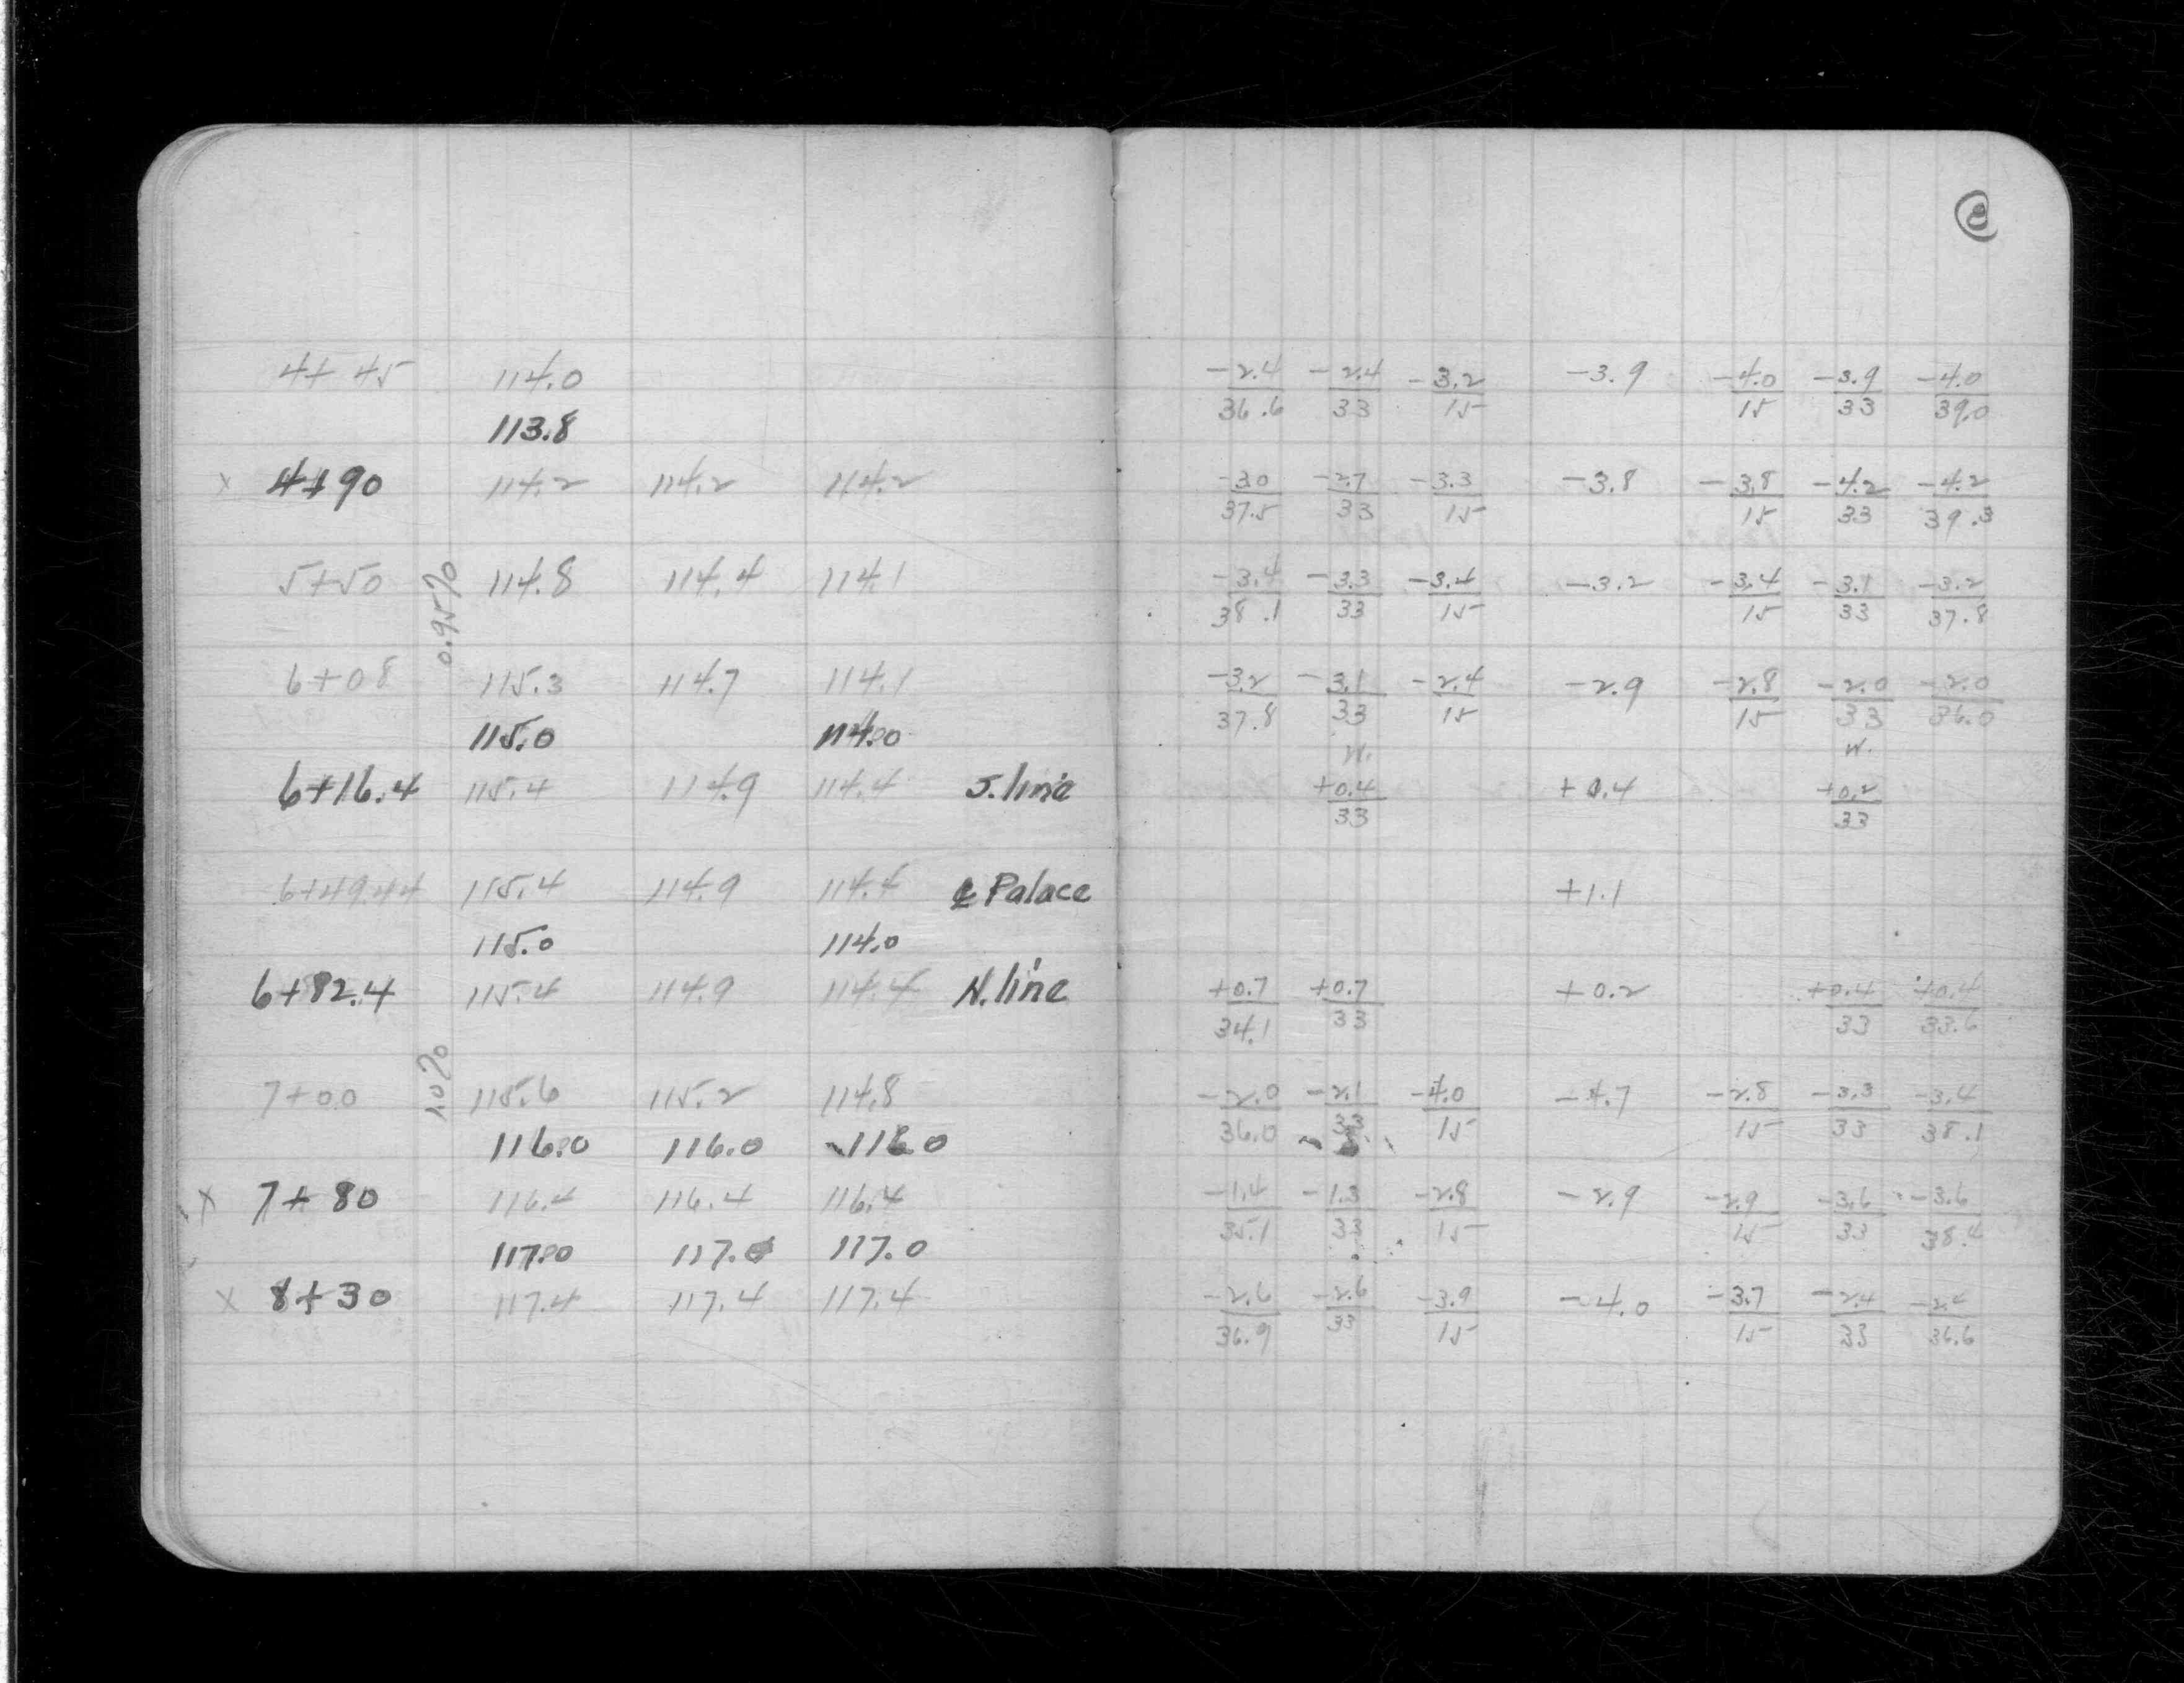 8
4+45 114.0 -2.4 -2.4 -3.2 -3.9 -4.0 -3.9 -4.0
36.6 33 15 15 33 39.0
113.8
x 4+90 114.2 114.2 114.2 -3.0 -2.7 -3.3 -3.8 -3.8 -4.2 -4.2
37.5 33 15 15 33 39.3
5+50 114.8 114.4 114.1 -3.4 -3.3 -3.4 -3.2 -3.4 -3.1 -3.2
38.1 33 15 15 33 37.8
0.95%
6+08 115.3 114.7 114.1 -3.2 -3.1 -2.4 -2.9 -2.8 -2.0 -2.0
37.8 33 15 15 33 36.0
115.0 114.0 W. W.
6+16.4 115.4 114.9 114.4 S. line +0.4 +0.4 +0.2
33 33
6+49.44 115.4 114.9 114.4 ℄ Palace +1.1
115.0 114.0
6+82.4 115.4 114.9 114.4 N. line +0.7 +0.7 +0.2 +0.4 +0.4
34.1 33 33 33.6
1.0%
7+00 115.6 115.2 114.8 -2.0 -2.1 -4.0 -4.7 -2.8 -3.3 -3.4
36.0 33 15 15 33 38.1
116.0 116.0 116.0
x 7+80 116.4 116.4 116.4 -1.4 -1.3 -2.8 -2.9 -2.9 -3.6 -3.6
35.1 33 15 15 33 38.4
117.0 117.0 117.0
x 8+30 117.4 117.4 117.4 -2.6 -2.6 -3.9 -4.0 -3.7 -2.4 -2.4
36.9 33 15 15 33 36.6